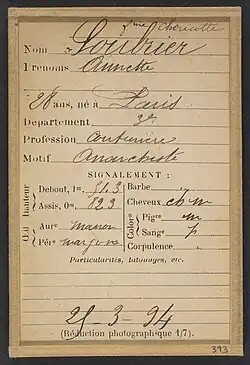 fme Chericotti
Nom Soubrier
Prénoms Annette
28 ans, né à Paris
Département 3e
Profession Couturière
Motif Anarchiste
SIGNALEMENT :
Hauteur Debout, 1m. 51.3
Assis, 0m. 82.3
Œil Aure marron
Péri
Barbe "
Cheveux ch m
Color° Pigre m
Sang° p
Corpulence. "
Particularités, tatouages, etc.
25-3-94
(Réduction photographique 1/7).
393